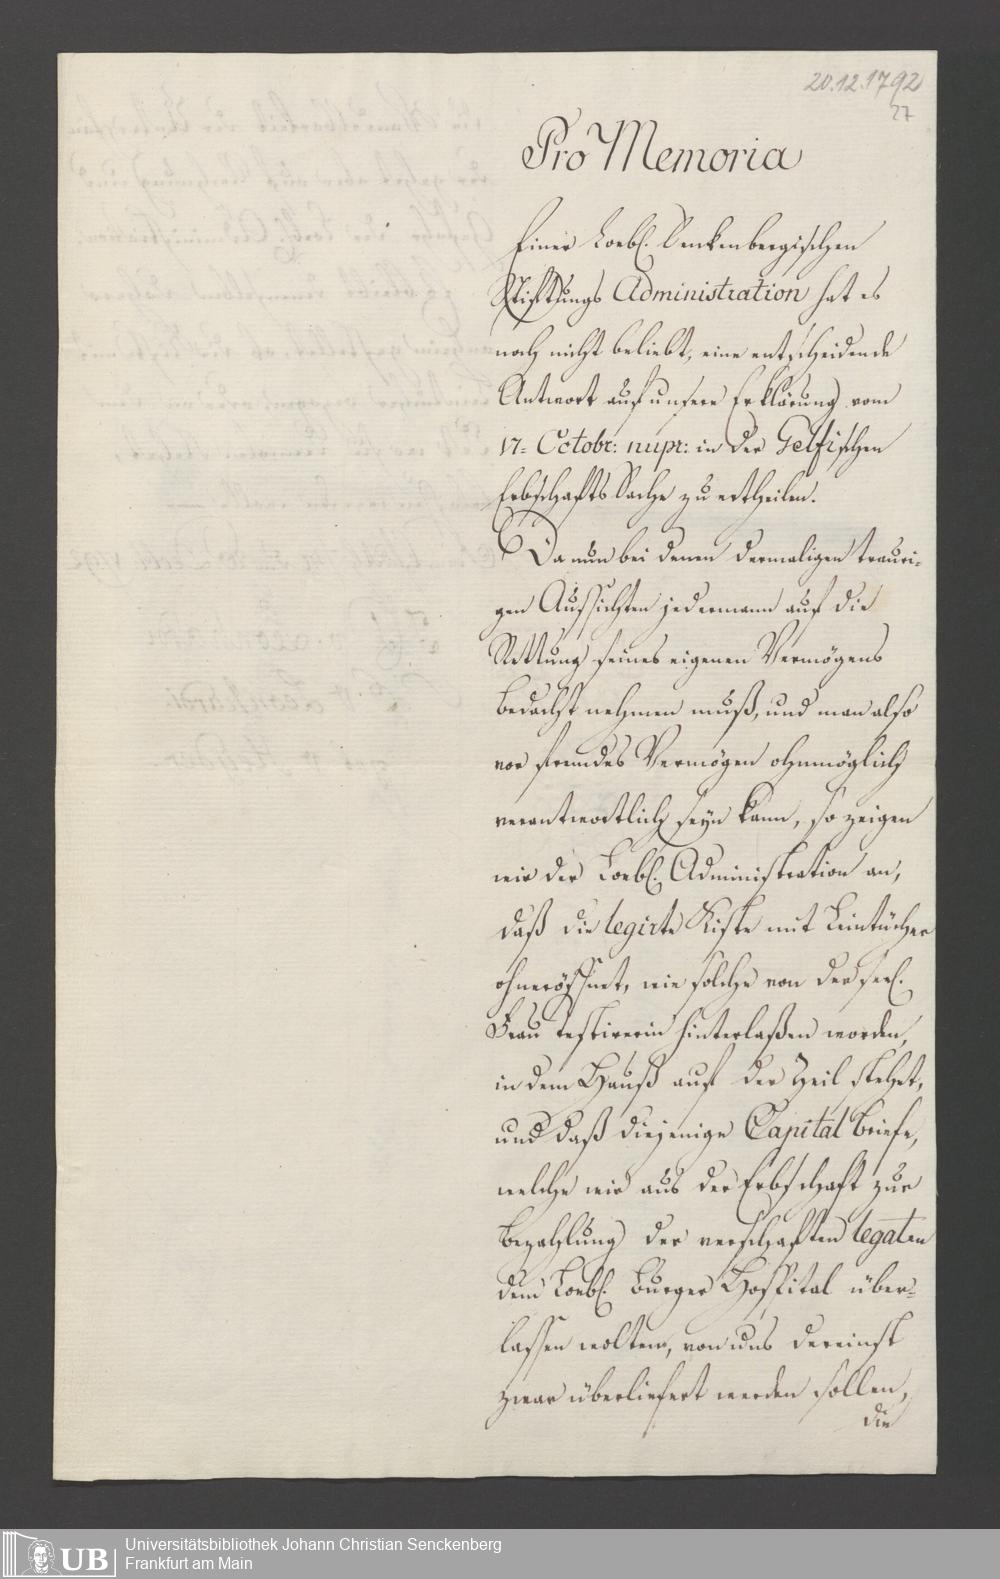 20.12.1792
27
Pro Memoria
Einer Loebl. Senkenbergischen
Stiftungs Administration hat es
noch nicht beliebt, eine entscheidende
Antwort auf unsere Erklärung vom
17= Octobr: nupr: in der Gelfischen
Erbschafts Sache zu ertheilen.
Da nun bei denen dermaligen trauri-
gen Aussichten jedermann auf die
Rettung seines eigenen Vermögens
bedacht nehmen muß, und man also
vor fremdes Vermögen ohnmöglich
verantwortlich seyn kann, so zeigen
wir der Loebl. Administration an,
daß die legirte Kiste mit Leintücher
ohneröffnet, wie solche von der seel.
Frau Testirerin hinterlaßen worden,
in dem Hauß auf der Zeil stehet,
und daß diejenige Capital Briefe,
welche wir aus der Erbschaft zur
Bezahlung der verschaften legaten
dem Loebl. Burger Hospital über-
lassen wolten, von uns dereinst
zwar überliefert werden sollen,
die
Universitätsbibliothek Johann Christian Senckenberg
Frankfurt am Main
UB